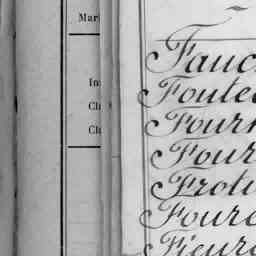 Mari
In
Ch
Ch
Fauc
Foute
Fourn
Four
Frotu
Foure
Fieure